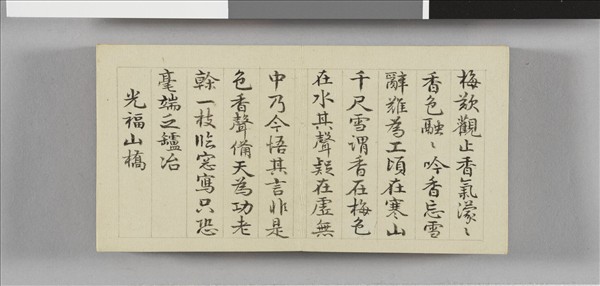 梅歘觀止香氣濛〻
香色融〻吟香忘雪
辭難為工頃在寒山
千尺雪謂香在梅色
在水其聲疑在虛無
中乃今悟其言非是
色香聲備天為功老
榦一枝臨窓寫只恐
毫端乏鑪冶
光福山橋